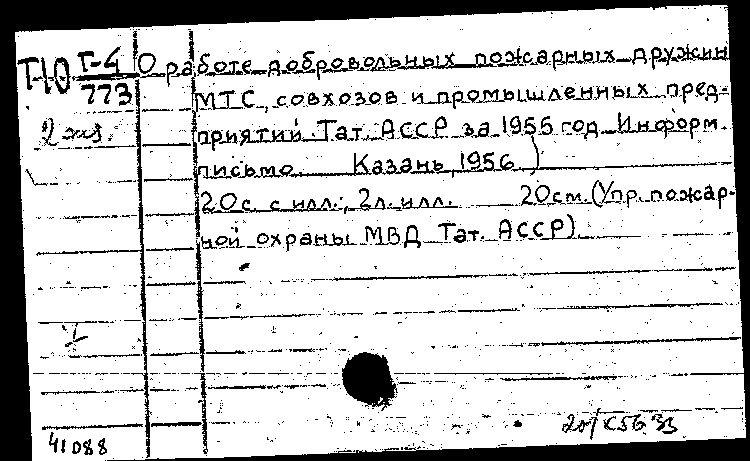 Т-10 Т-4 О работе добровольных пожарных дружин
773 МТС, совхозов и промышленных пред-
2 экз. приятий Тат. АССР за 1955 год. Информ.
письмо. Казань, 1956.
20с. с илл.; 2л. илл. 20см. (Упр. пожар-
ной охраны МВД Тат. АССР).
41088